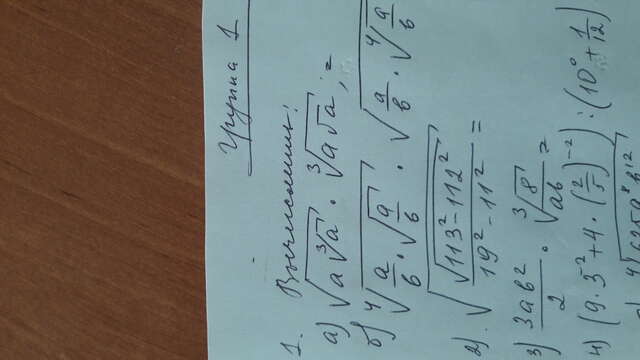 Группа 1
1. Вычислить:
а) √(a ∛a) · ∛(a √a); =
б) ⁴√(a/b · √(a/b)) · √(a/b · ⁴√(a/b
2). √(√(113² - 112²) / (19² - 11²)) =
3) 3ab²/2 · ∛(8/ab) =
4) (9 · 5⁻² + 4 · (2/5)⁻²) : (10⁰ + 1/12)
⁴√(625a⁸b¹²